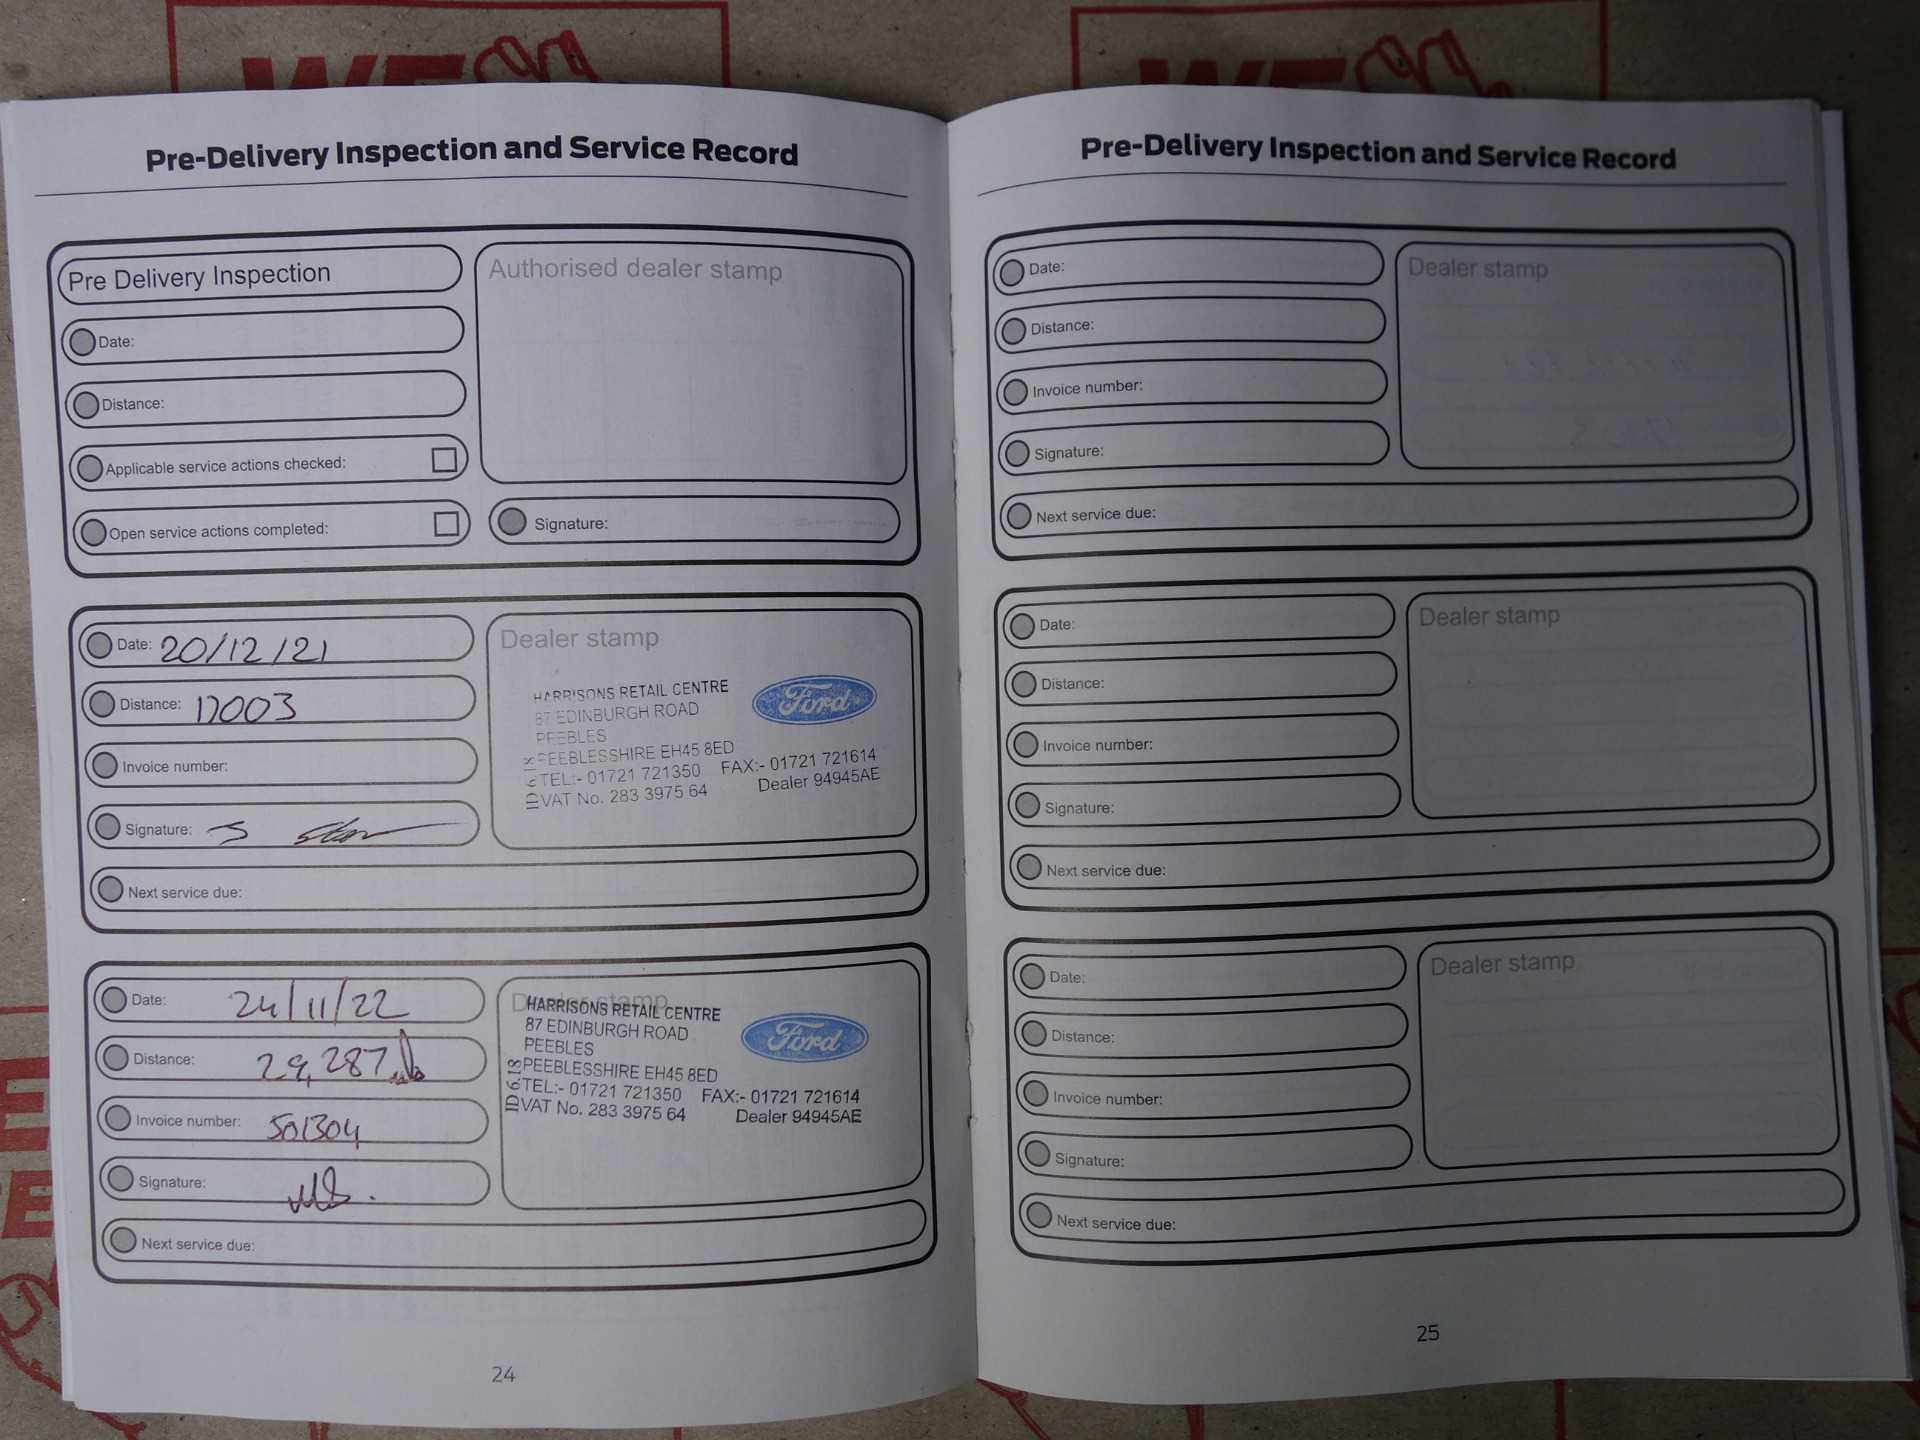 WE
WE
Pre-Delivery Inspection and Service Record
Pre Delivery Inspection
Date:
Distance:
Applicable service actions checked:
Open service actions completed:
Authorised dealer stamp
Signature:
Date: 20/12/21
Distance: 17003
Invoice number:
Signature:
Next service due:
Dealer stamp
HARRISONS RETAIL CENTRE
87 EDINBURGH ROAD
PEEBLES
PEEBLESSHIRE EH45 8ED
TEL:- 01721 721350 FAX:- 01721 721614
VAT No. 283 3975 64 Dealer 94945AE
Ford
Date: 24/11/22
Distance: 29,287
Invoice number: 501304
Signature:
Next service due:
Dealer stamp
HARRISONS RETAIL CENTRE
87 EDINBURGH ROAD
PEEBLES
PEEBLESSHIRE EH45 8ED
TEL:- 01721 721350 FAX:- 01721 721614
VAT No. 283 3975 64 Dealer 94945AE
ID 618
Ford
24
Pre-Delivery Inspection and Service Record
Date:
Distance:
Invoice number:
Signature:
Next service due:
Dealer stamp
Date:
Distance:
Invoice number:
Signature:
Next service due:
Dealer stamp
Date:
Distance:
Invoice number:
Signature:
Next service due:
Dealer stamp
25